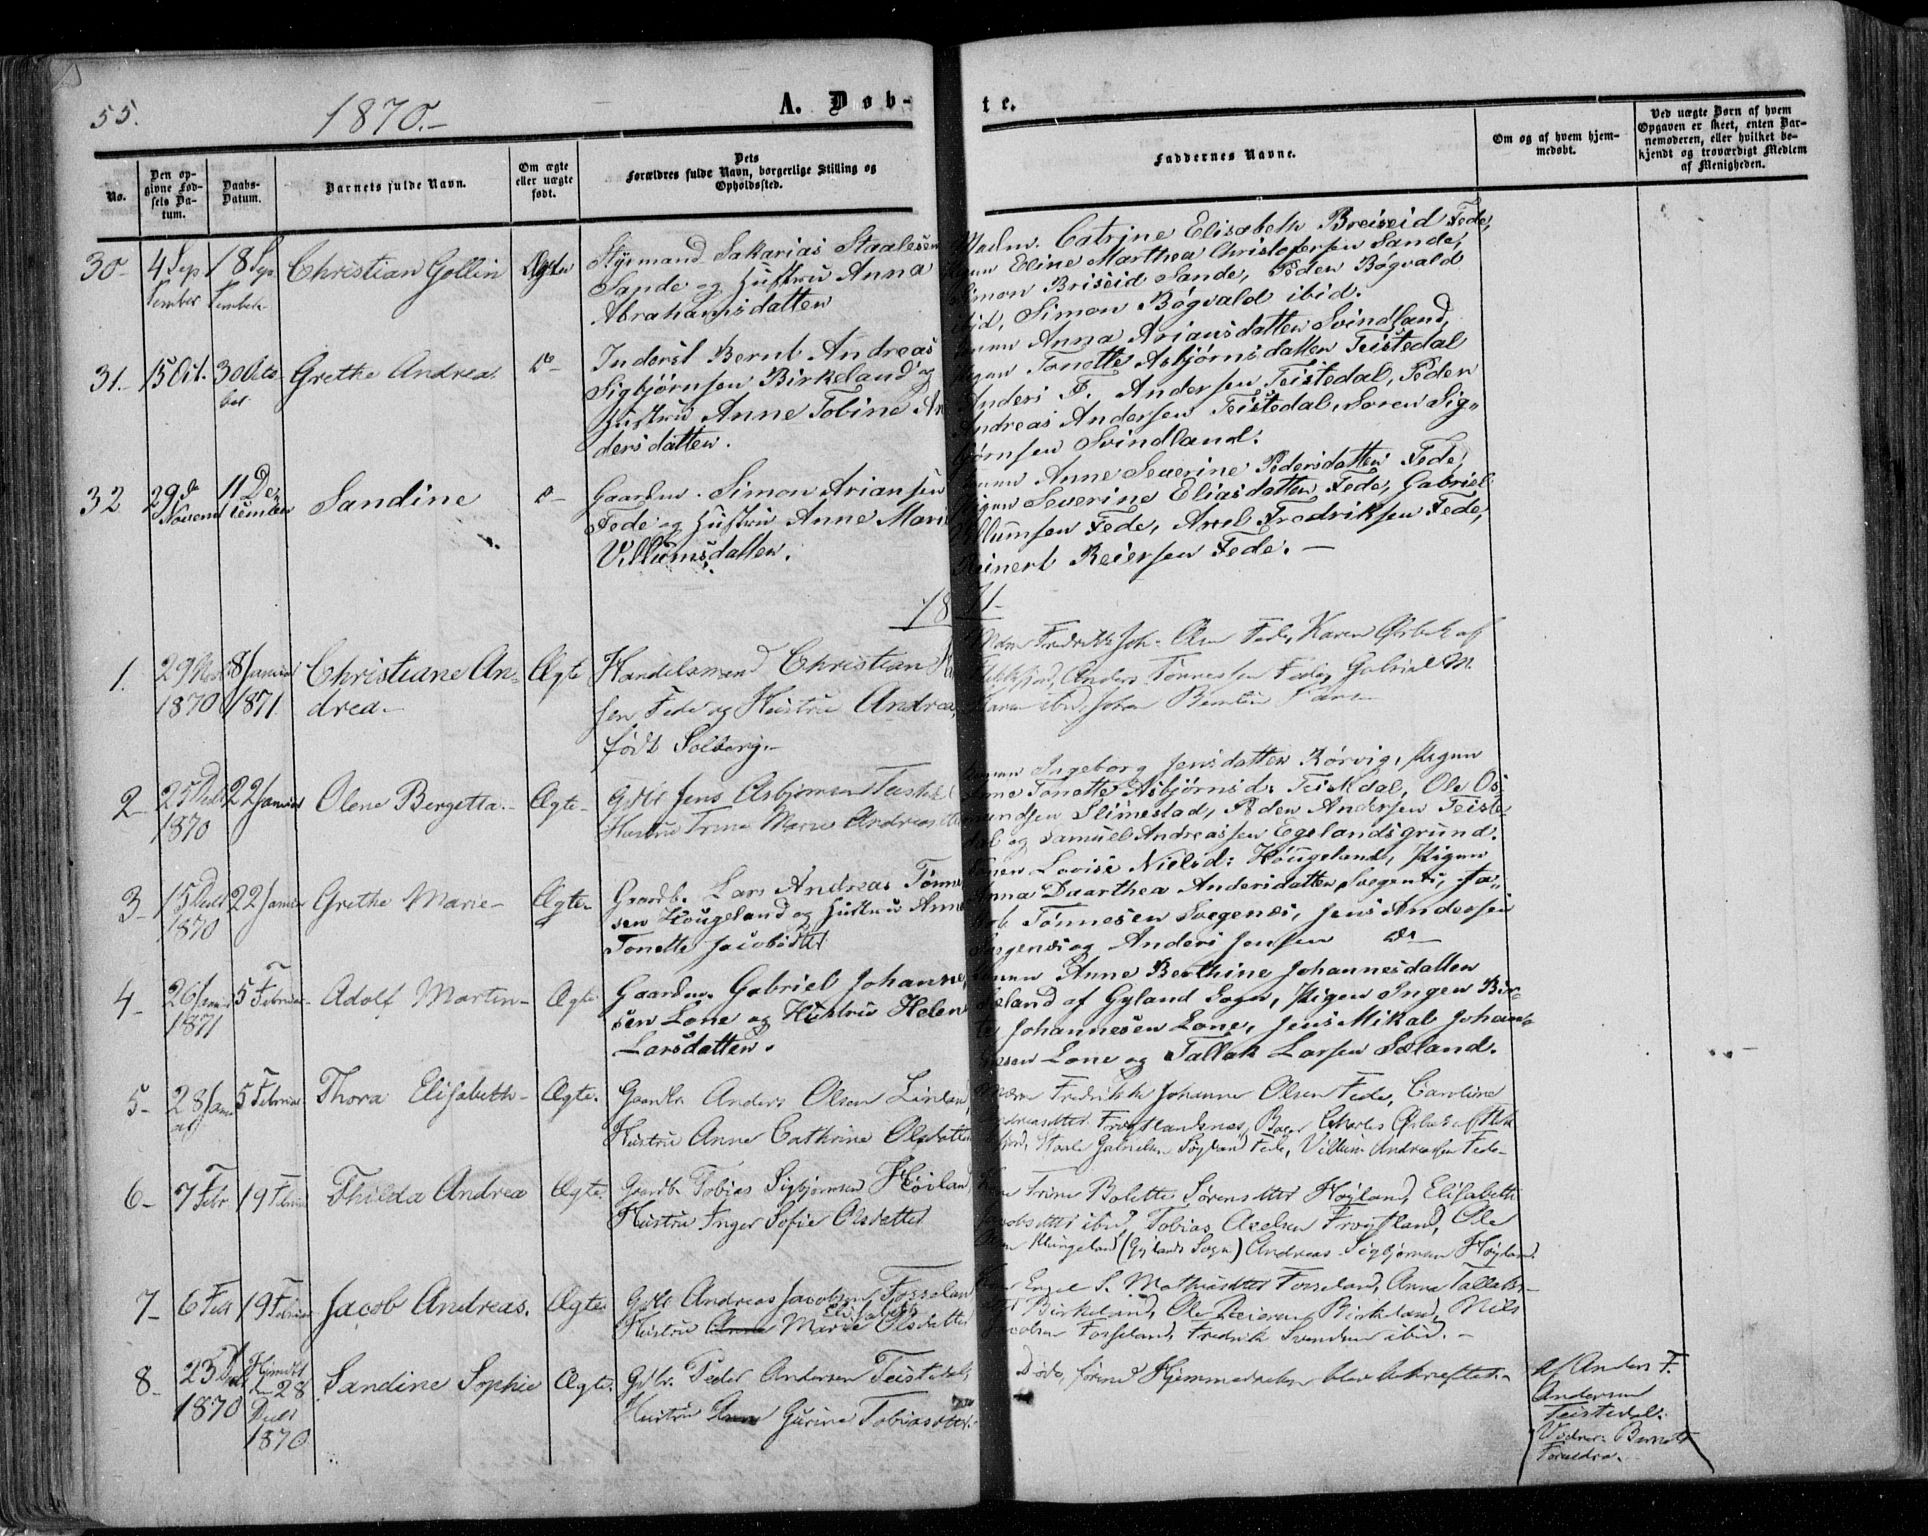 55.
1870.-
A. Døb-
te.
No.
Den op-
givne Fød-
sels Da-
tum.
Daabs-
Datum.
Barnets fulde Navn.
Om ægte
eller uægte
født.
Dets
Forældres fulde Navn, borgerlige Stilling og
Opholdssted.
Faddernes Navne.
Om og af hvem hjem-
medøbt.
Ved uægte Børn af hvem
Opgaven er skeet, enten Bar-
nemoderen, eller hvilket be-
kjendt og troværdigt Medlem
af Menigheden.
30- 4 Sep
tember
18 Sep
tember
Christian Gollin
Ægte
Styrmand Sakarias Staalesen
Sande og Hustru Anna
Abrahamsdatten
Madm. Catrine Elisabeth Breiseid Fede,
Eline Marthea Christofersen Sande,
Simon Briseid Sande, Peder Bøgvald
ibid, Simon Bøgvald ibid.
31.- 15 Oct. 30 Octo
ber
Grethe Andrea
Inderst Bernt Andreas
Sigbjørnsen Birkeland og
Hustru Anne Tobine An
dersdatten.
Anna Ariansdatten Svindland,
Pigen Tonette Asbjørnsdatten Teistedal
Anders F. Andersen Teistedal, Peder
Andreas Andersen Teistedal, Soren Sig-
bjørnsen Svindland.
32 29de
Novem
11 De-
cember
Sandine
Gaardm. Simon Ariansen
Fede og Hustru Anne Marie
Villumsdatten.
Anne Severine Pedersdatten Fede,
Pigen Severine Eliasdatten Fede, Gabriel
Villumsen Fede, Axel Fredriksen Fede,
Reinert Reiersen Fede. -
1871-
1. 29 Nov
1870
8 Januar
1871
Christiane An-
drea-
Ægte
Handelsmand Christian
sen Fede og Hustru Andrea,
født Solberg.-
Fredrikke Joh. Fede, Karen af
Flekkefjord, Anders Tønnessen Fede, Gabriel M.
ibid, Johan
2- 25 Decbr
1870
22 Januar
Olene Bergetta.-
Ægte-
Gdbr Jens Asbjørnsen Teistedal
Hustru Trine Marie Andreasdtter
Ingeborg Jensdatten Rørvig, Pigen
Tonette Asbjørnsd: Teistdal, Ole Os-
mundsen Slimestad, Peder Andersen Teiste-
dal og Samuel Andreassen Egelandsgrund.
3- 15 Decbr
1870
22 Januar
Grethe Marie-
Ægte-
Gaardb. Lars Andreas Tønne
sen Hougeland og Hustru Anne
Tonette Jacobsdtter
Konen Lovise Nielsd: Hougeland, Pigen
Anna Daarthea Andersdatten Svegenes, Ja-
cob Tønnesen Svegenes, Jens Andersen
Svegenes og Anders Jensen do-
4- 26 Januar
1871
5 Februar-
Adolf Martin-
Ægte
Gaardm. Gabriel Johanne-
sen Lone og Hustru Helene
Larsdatten.
Konen Anne Berthine Johannesdatten
Sæland af Gyland Sogn, Pigen Ingen Bir-
te Johannesen Lone, Jens Mikal Johan-
nesen Lone og Tallak Larsen Sæland.
5- 28 Janu
ar
5 Februar
Thora Elisabeth-
Ægte.
Gaardbr Anders Olsen Linland,
Hustru Anne Cathrine Olsdatter
Fredrikke Johanne Olsen Fede, Caroline
Andreasdtter Frøytlandsnes, Charles Flek
kefjord, Staale Gabrielsen Søyland Fede, Villum Andreassen Fede-
6- 7 Febr 19 Februar
Thilda Andrea
Ægte.
Gaardb. Tobias Sigbjørnsen Høiland
Hustru Inger Sofie Olsdatter
Trine Bolette Sørensdtter Høyland, Elisabeth
Jacobsdtter ibid, Tobias Axelsen Frøytland, Ole
Klungeland (Gylands Sogn) Andreas Sigbjørnsen Høyland.
7- 6 Febr 19 Februar
Jacob Andreas.
Ægte
Gdbr Andreas Jacobsen Fosseland
Elisabeth
Hustru Anne Marie Olsdatter
Engel S. Mathiasdtter Fosseland, Anna Tallaks-
dtter Birkeland, Ole Reiersen Birkeland, Nils
Jacobsen Fosseland, Fredrik Svendsen ibid. -
8- 23 Decbr
1870
Hjemdøbt
den 28
Decbr
1870
Sandine Sophie
Ægte.
Gdbr. Peder Andersen Teistedal,
Hustru Anne Gurine Tobiasdtter.
Døde, førend Hjemmedaaben blev bekræftet.-
Af Anders F.
Andersen
Teistedal.
Vidner: Barnets
Forældre.